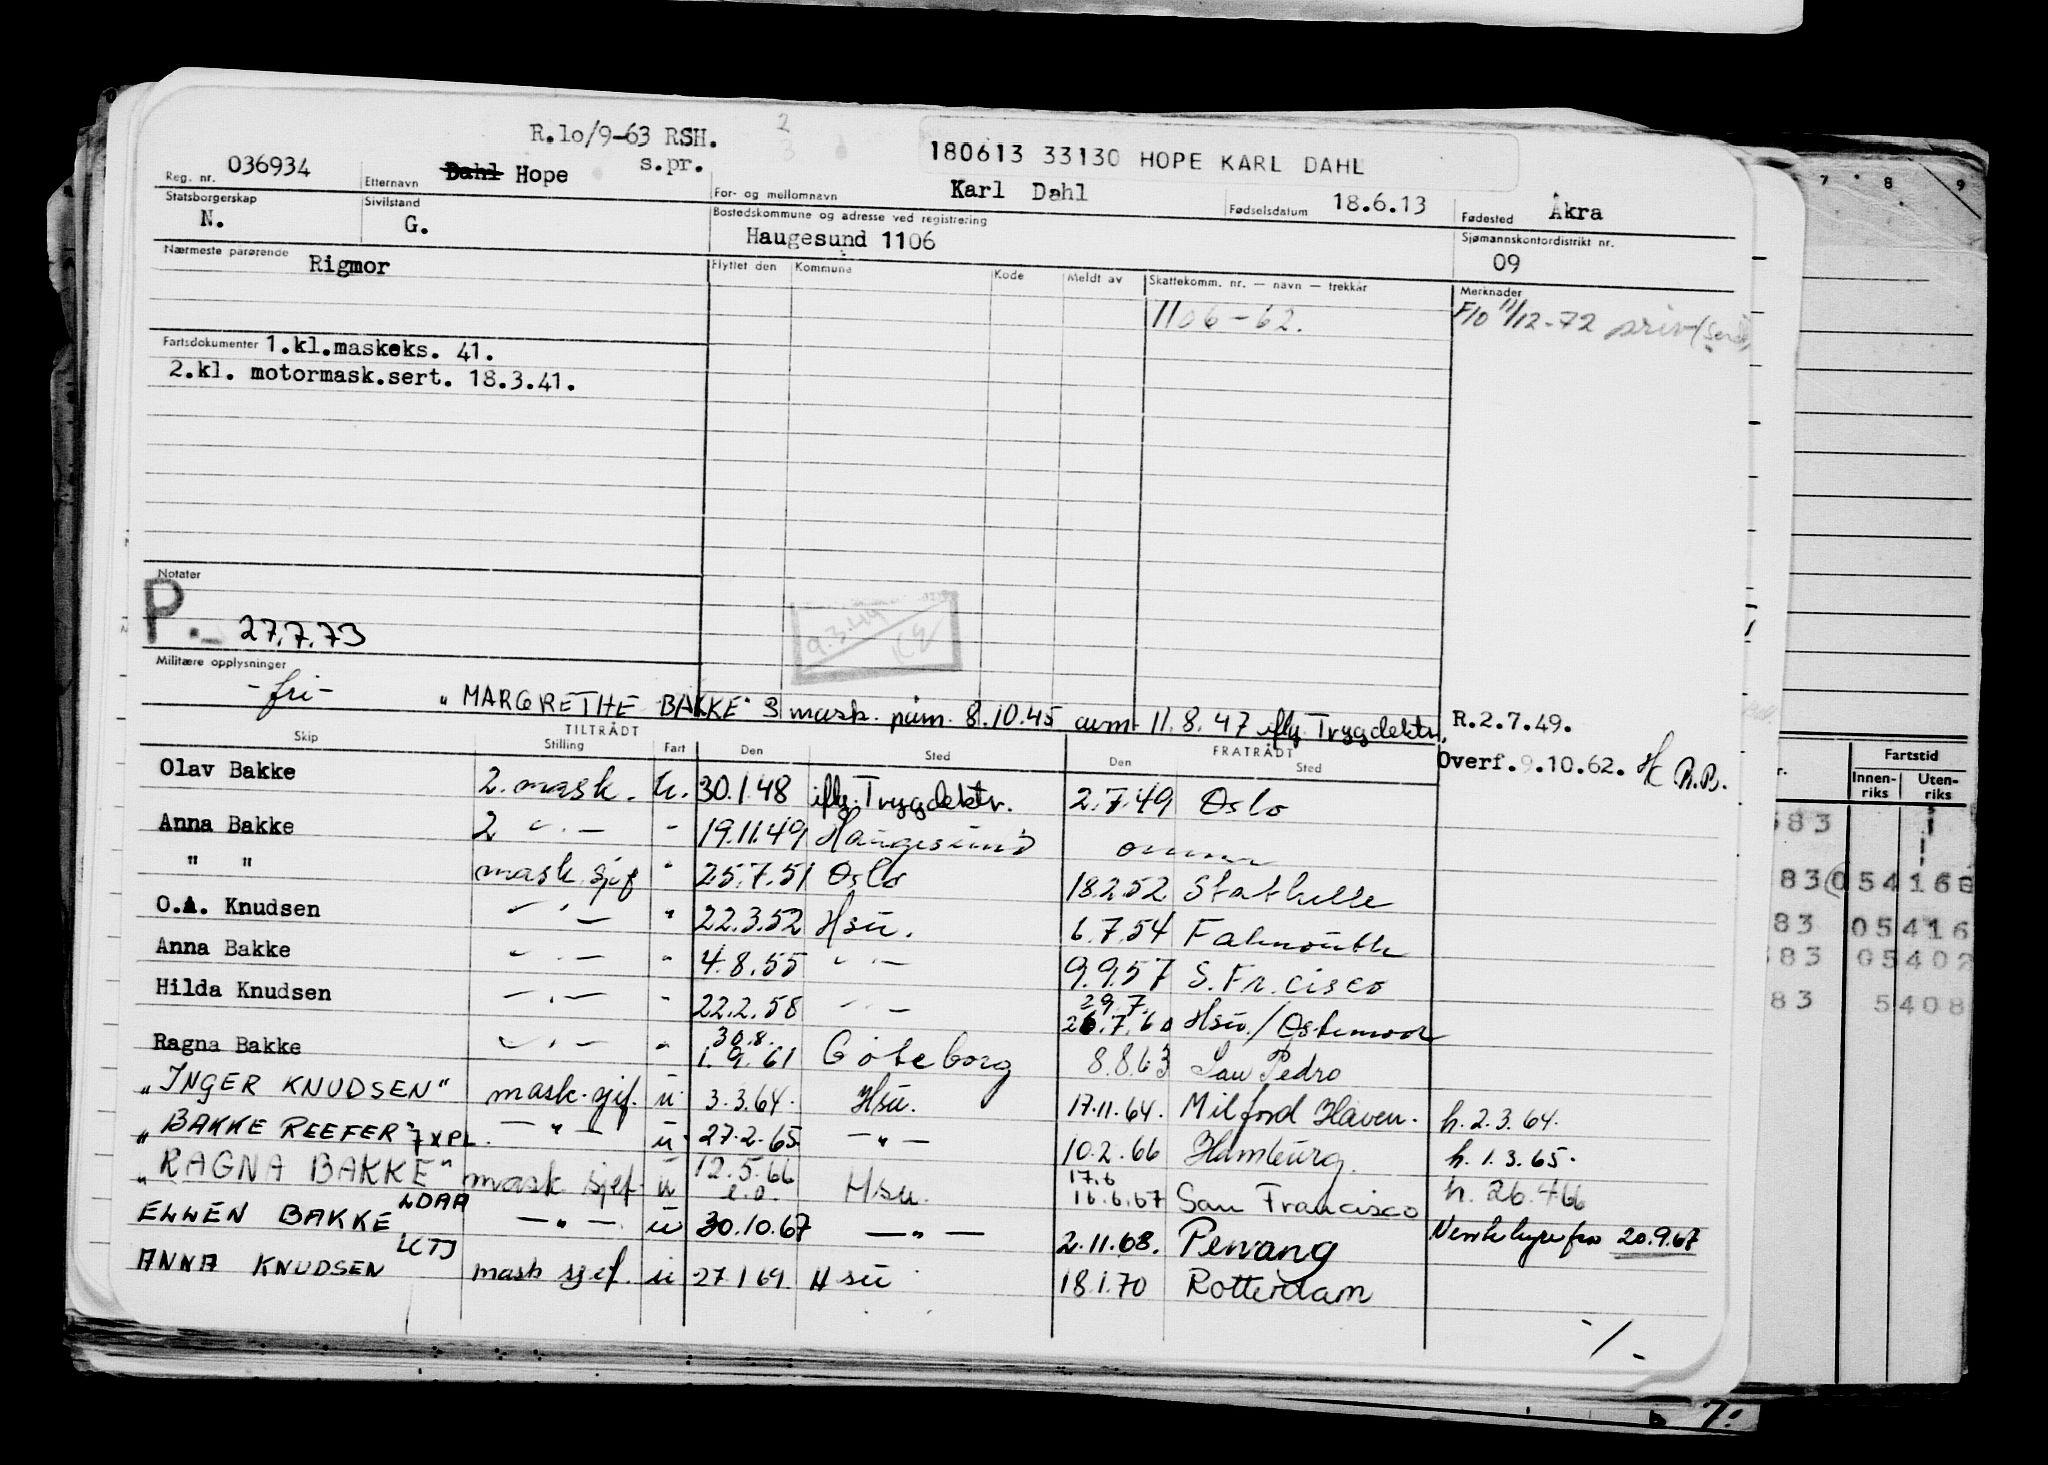 R.lo/9-63 RSH.
s.pr.
180613 33130 HOPE KARL DAHL
Reg. nr. 036934 Etternavn Dahl Hope For- og mellomnavn Karl Dahl Fødselsdatum 18.6.13 Fødested Åkra
Statsborgerskap N. Sivilstand G. Bostedskommune og adresse ved registrering Haugesund 1106 Sjømannskontordistrikt nr. 09
Nærmeste pårørende Rigmor Flyttet den Kommune Kode Meldt av Skattekomm. nr. — navn — trekkår Merknader
1106-62. F/o 11/12-72
Fartsdokumenter 1.kl.maskeks. 41.
2.kl. motormask.sert. 18.3.41.
Notater
P. 27.7.73
Militære opplysninger
-fri-
"MARGRETHE BAKKE" 3 mask. påm. 8.10.45 avm. 11.8.47 iflg. Trygdektr. R.2.7.49.
TILTRÅDT FRATRÅDT Overf. 9.10.62. H R.B.
Skip Stilling Fart Den Sted Den Sted
Olav Bakke 2. mask. u. 30.1.48 iflg. Trygdektr. 2.7.49 Oslo
Anna Bakke 2 —"— " 19.11.49 Haugesund
" " mask.sjef " 25.7.51 Oslo 18.2.52 Stathelle
O.A. Knudsen —"— " 22.3.52 Hsu. 6.7.54 Falmouth
Anna Bakke —"— " 4.8.55 —"— 9.9.57 S. Fr.cisco
Hilda Knudsen —"— " 22.2.58 —"— 29.7. 26.7.60 Hsu./
Ragna Bakke —"— " 30.8. 1.9.61 Göteborg 8.8.63 San Pedro
"INGER KNUDSEN" mask.sjef. u 3.3.64. Hsu. 17.11.64. Milford Haven. h. 2.3.64.
"BAKKE REEFER" 7XPL. —"— u 27.2.65 —"— 10.2.66 Hamburg. h. 1.3.65.
"RAGNA BAKKE" mask sjef. u 12.5.66 e.o. Hsu. 17.6 16.6.67 San Francisco h. 26.4.66
ELLEN BAKKE LDAA —"— u 30.10.67 —"— 2.11.68. Penang Ventehyre fra 20.9.67
ANNA KNUDSEN LCTJ mask sjef. u 27.1.69. Hsu 18.1.70 Rotterdam
-/-
7 8 9
Fartstid
Innen-riks Uten-riks
583
83 054168
83 05416
583 05402
83 5408
7.